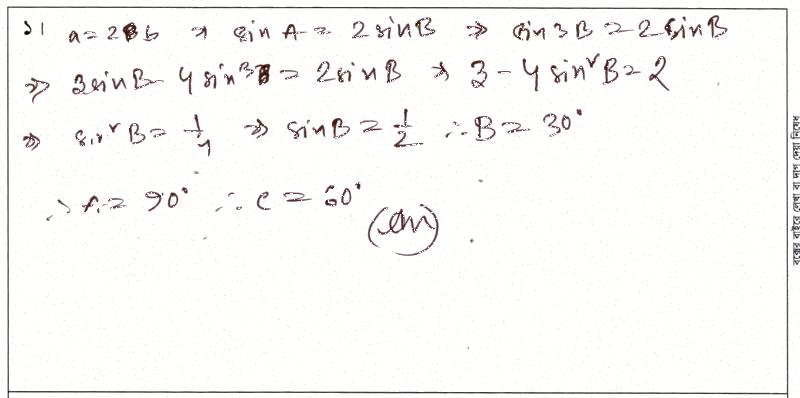 ১। a = 2b ⇒ sin A = 2 sin B ⇒ sin 3B = 2 sin B
⇒ 3 sin B - 4 sin³B = 2 sin B ⇒ 3 - 4 sin²B = 2
⇒ sin²B = 1/4 ⇒ sin B = 1/2 ∴ B = 30°
∴ A = 90° ∴ C = 60°
(Ans)
বক্সের বাইরে লেখা বা দাগ দেয়া নিষেধ